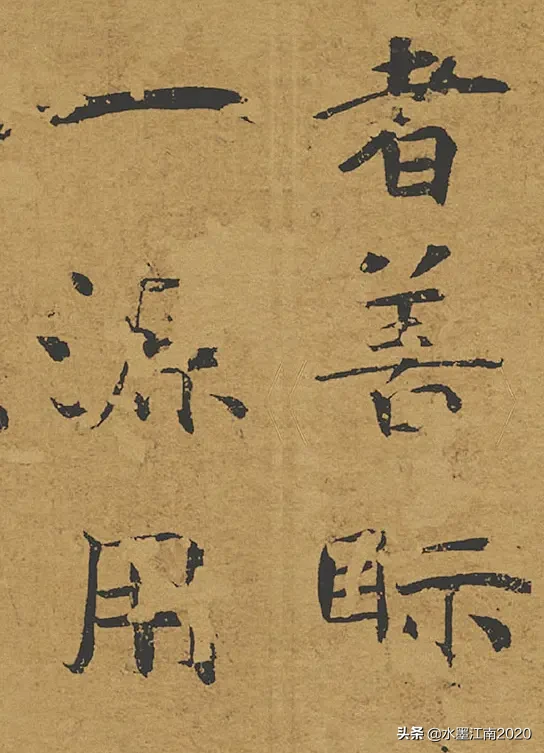 者善眎
一源用
头条 @水墨江南2020